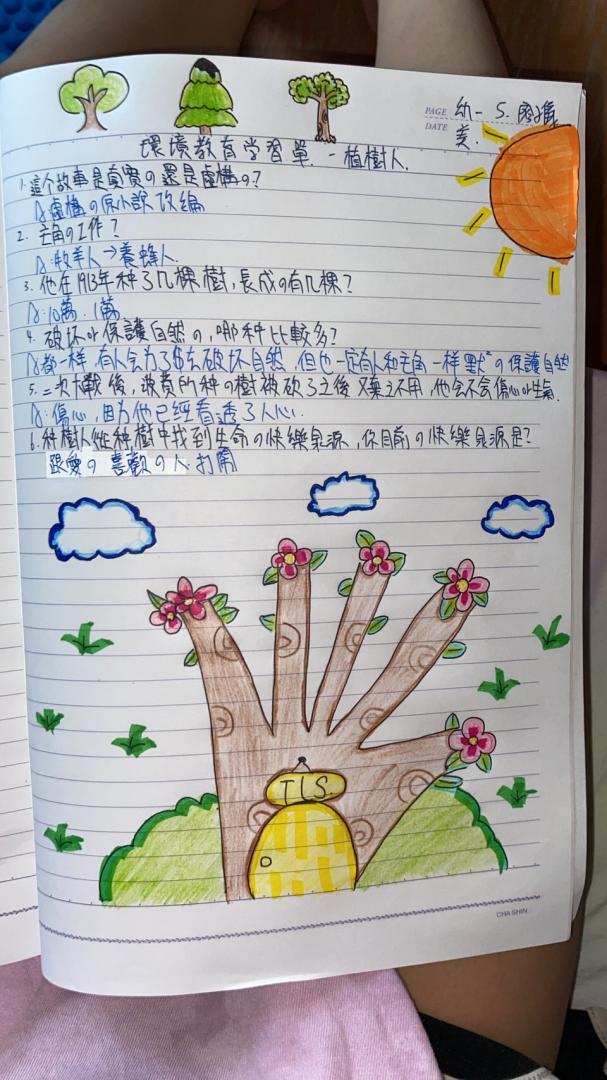 PAGE 幼一 S.
DATE
環境教育学習單 - 植樹人.
1. 這个故事是真實の還是虛構の?
A: 虛構の係小說改編
2. 主角の工作?
A: 牧羊人→養蜂人.
3. 他在1913年种了几棵樹,長成の有几棵?
A: 10萬. 1萬
4. 破坏or保護自然の,哪种比較多?
A: 都一样,有人会为了㎡去破坏自然,但也一定有人和主角一样默〃の保護自然
5. 二次大戰後,浪費所种の樹被砍了之後又棄之不用,他会不会傷心or生氣.
A: 傷心,因为他已經看透了人心.
6. 种樹人從种樹中找到生命の快樂泉源,你目前の快樂泉源是?
跟愛の 喜歡の人 打鬧
TLS.
CHA SHIN